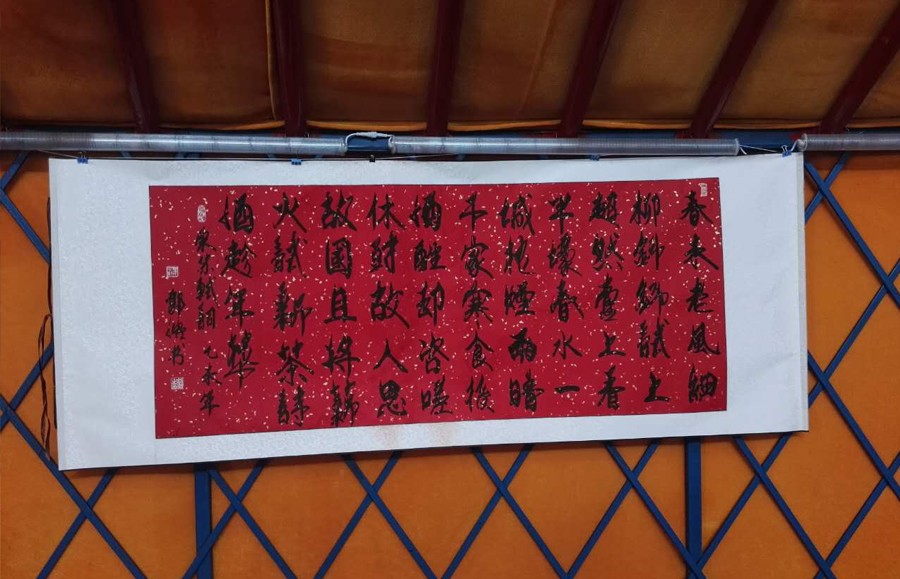 春未老風細
柳斜斜試上
超然臺上看
半壕春水一
城花煙雨暗
千家寒食後
酒醒却咨嗟
休對故人思
故國且將新
火試新茶詩
酒趁年華
軾詞 乙未年